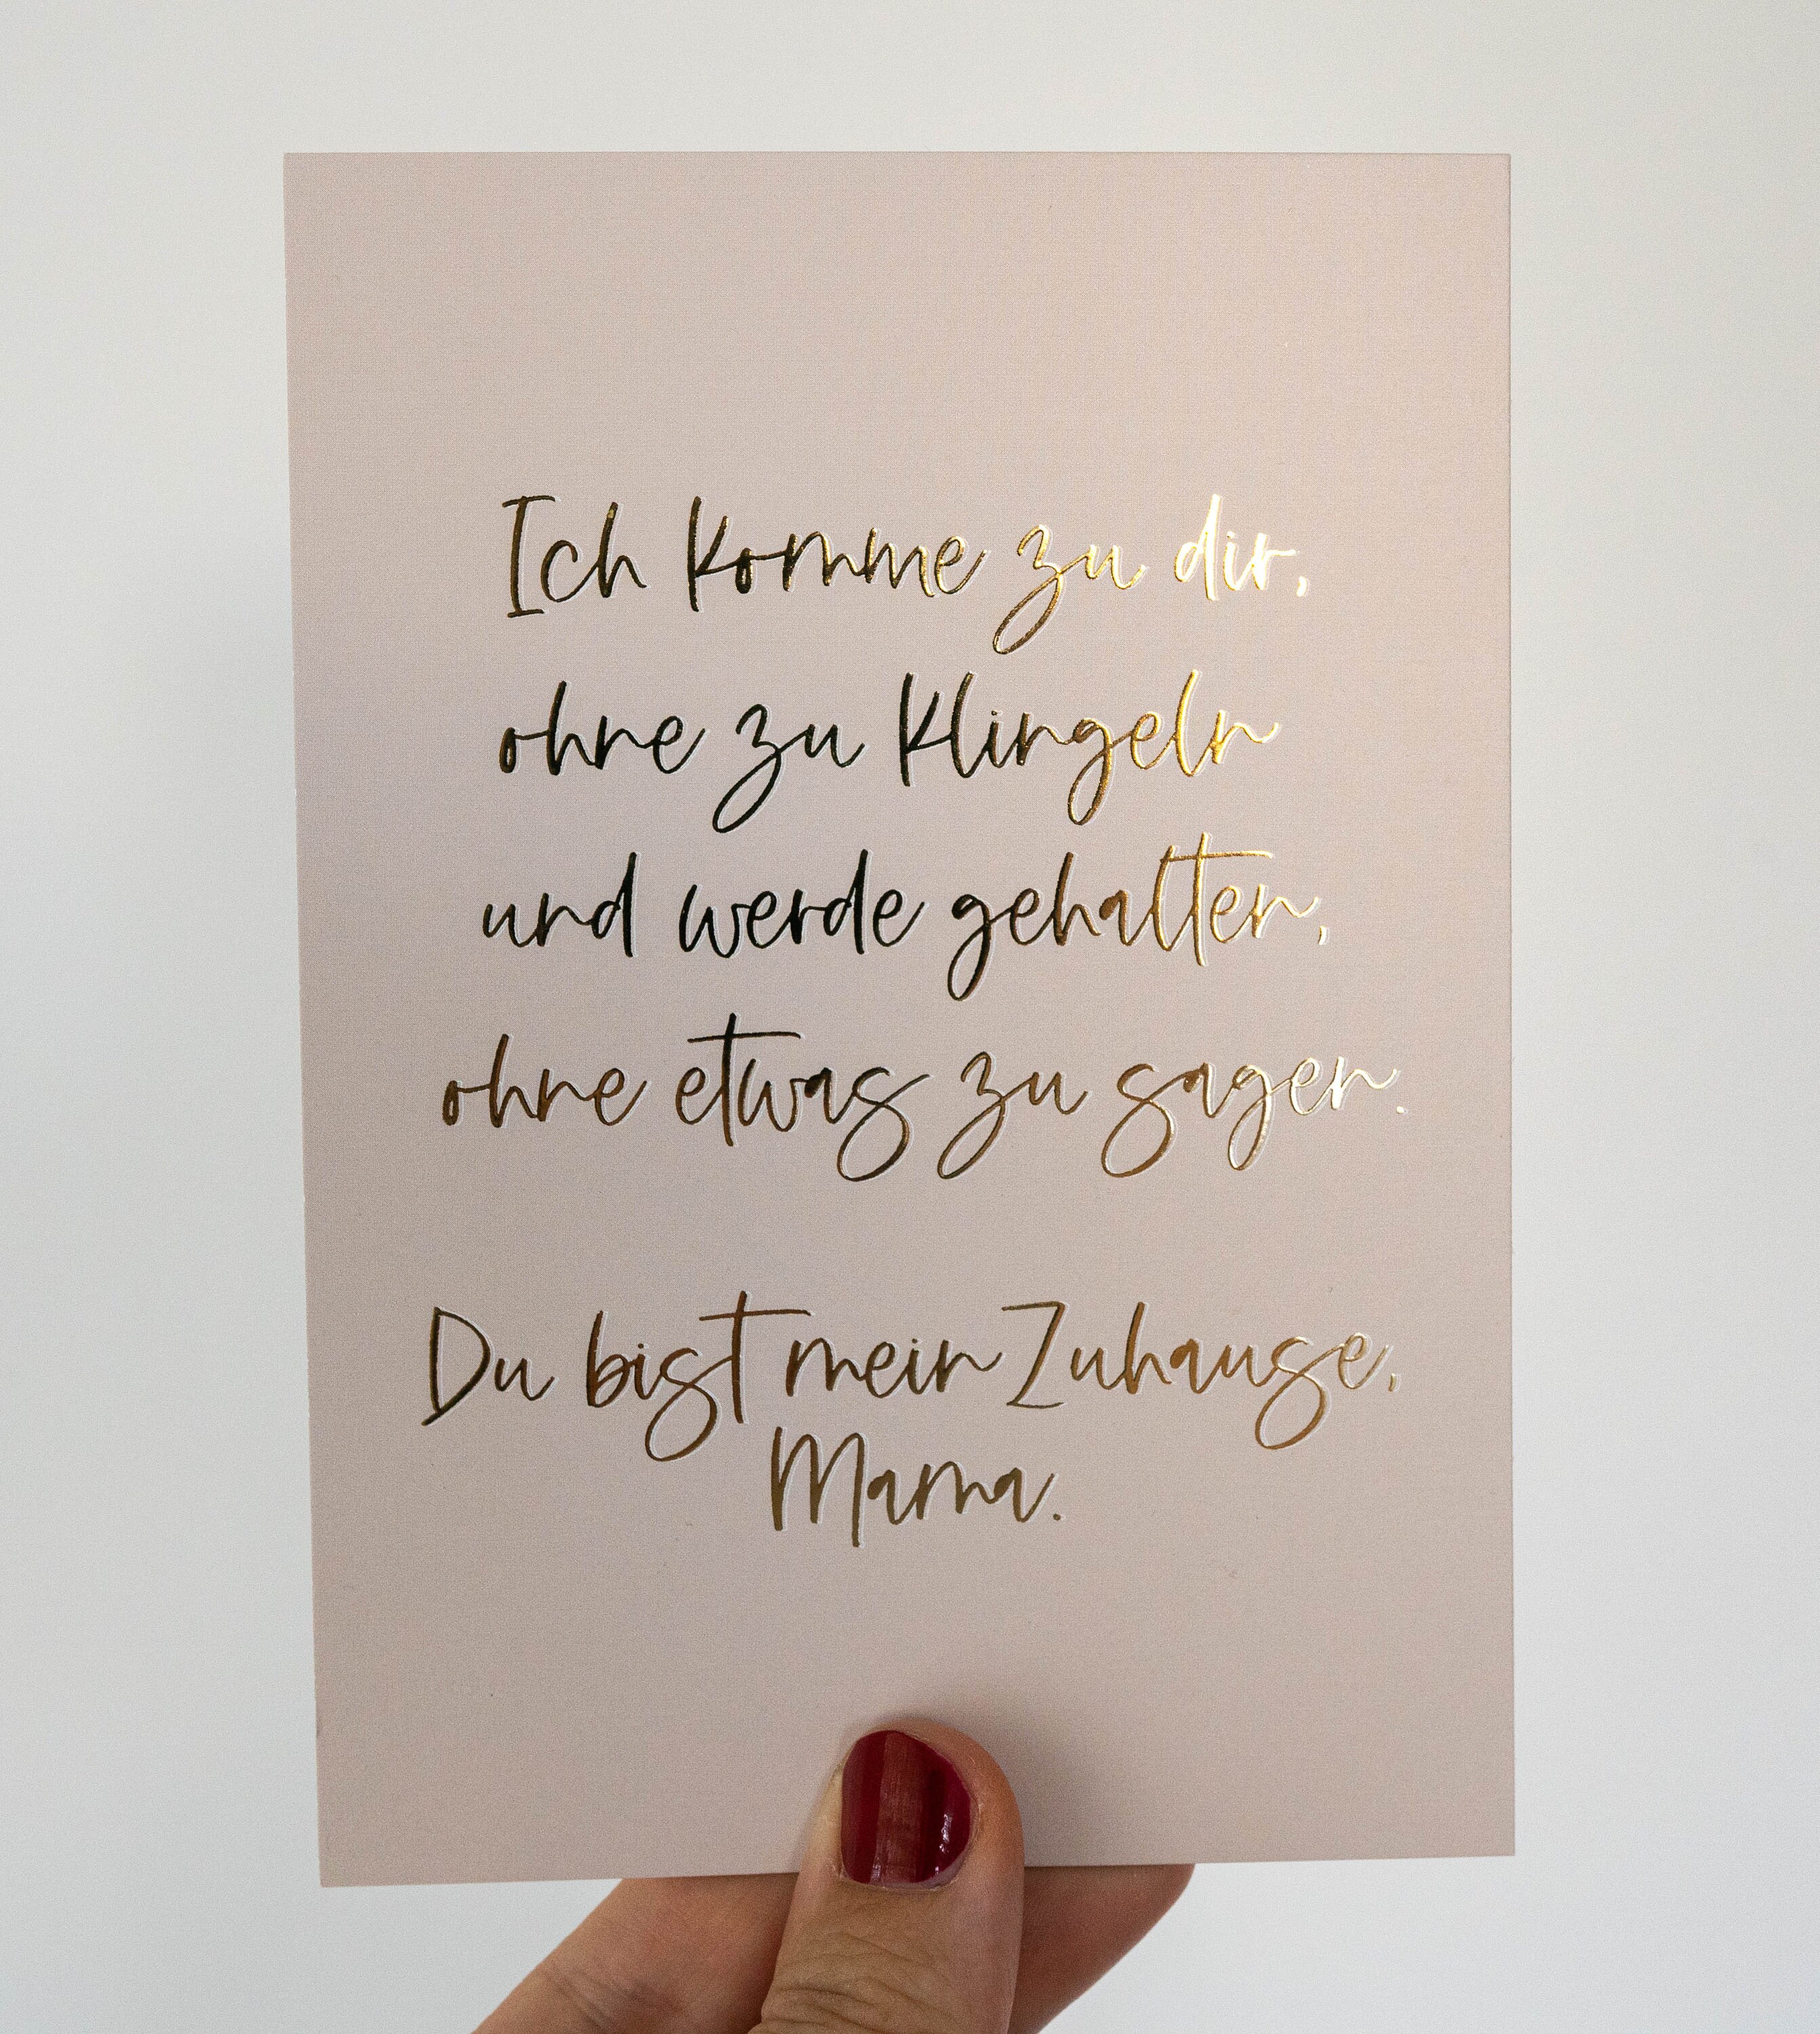 Ich komme zu dir,
ohne zu klingeln
und werde gehalten,
ohne etwas zu sagen.
Du bist mein Zuhause,
Mama.